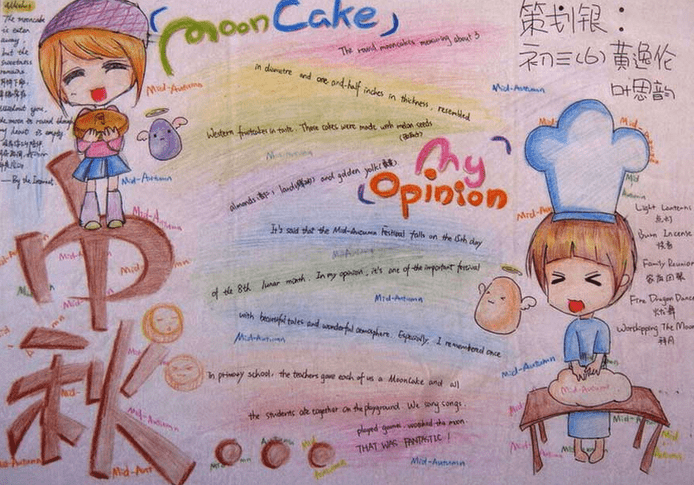 Moon Cake
The mooncake
is eaten
away,
but the
sweetness
remains
Without you,
the moon is round though
my heart is empty
—By the Internet
中秋
The round mooncakes measuring about 3
in diametre and one and-half inches in thickness, resembled
Western fruitcakes in taste. These cakes were made with melon seeds
almonds
and golden yolk
My
Opinion
It's said that the Mid-Autumn Festival falls on the 15th day
of the 8th lunar month. In my opinion, it's one of the important festival
with beautiful tales and wonderful atmosphere. Especially, I remembered once
In primary school, the teachers gave each of us a MoonCake and all
the students ate together on the playground. We sang songs,
played games, watched the moon.
THAT WAS FANTASTIC!
策划银：
初三(6) 黄逸伦
叶思韵
Light Lanterns
点灯
Burn Incense
Family Reunion
家庭团聚
Fire Dragon Dance
Worshipping The Moon
拜月
Mid-Autumn
Mid-Autumn
Mid-Autumn
Mid-Autumn
Mid-Autumn
Mid-Autumn
Mid-Autumn
Mid-Autumn
Mid-Autumn
Mid-Autumn
Mid-Autumn